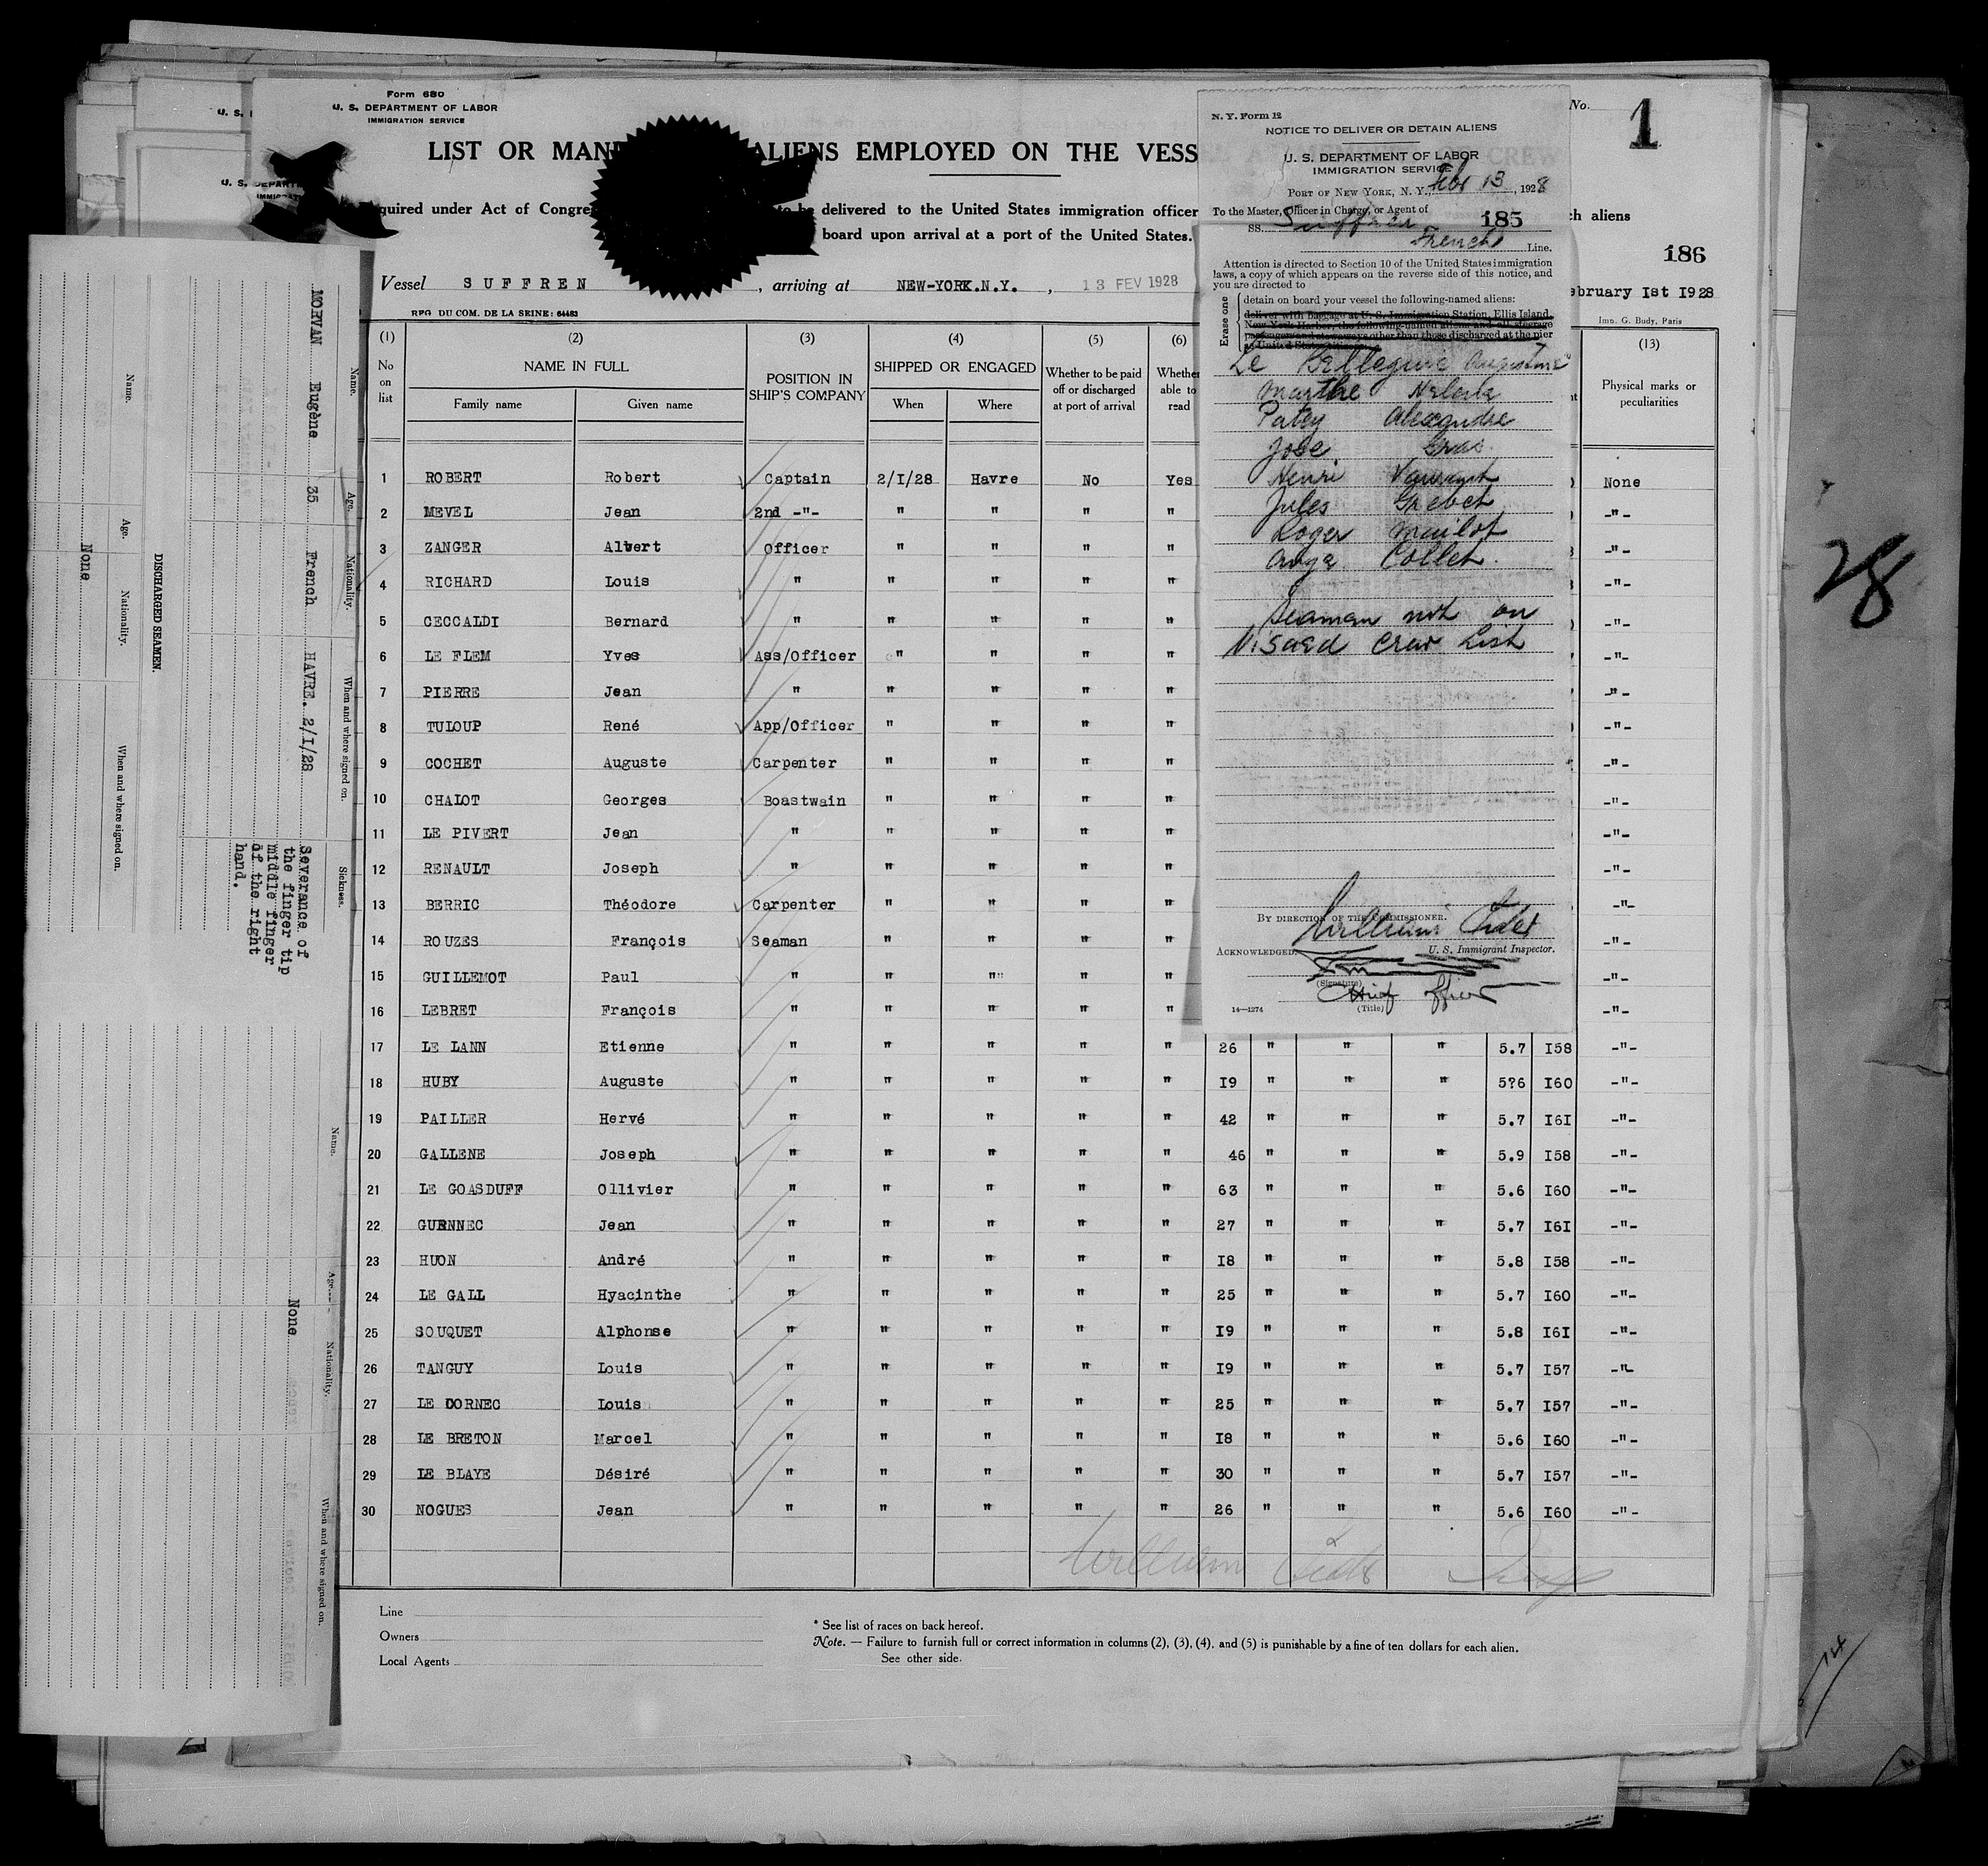 Form 680
U. S. DEPARTMENT OF LABOR
IMMIGRATION SERVICE
No. 1
LIST OR ALIENS EMPLOYED ON THE
under Act of delivered to the United States immigration officer aliens
board upon arrival at a port of the United States.
186
Vessel SUFFREN , arriving at NEW-YORK.N.Y. , 13 FEV 1928
1st 1928
RPG DU COM. DE LA SEINE: 64483
Imp. G. Budy, Paris
(1) (2) (3) (4) (5) (6) (13)
No on list
NAME IN FULL
Family name Given name
POSITION IN SHIP'S COMPANY
SHIPPED OR ENGAGED
When Where
Whether to be paid off or discharged at port of arrival
Whether able to read
Physical marks or peculiarities
1 ROBERT Robert Captain 2/1/28 Havre No Yes None
2 MEVEL Jean 2nd -"- " " " " -"-
3 ZANGER Albert Officer " " " " -"-
4 RICHARD Louis " " " " " -"-
5 CECCALDI Bernard " " " " " -"-
6 LE FLEM Yves Ass/Officer " " " " -"-
7 PIERRE Jean " " " " " -"-
8 TULOUP René App/Officer " " " " -"-
9 COCHET Auguste Carpenter " " " " -"-
10 CHALOT Georges Boastwain " " " " -"-
11 LE PIVERT Jean " " " " " -"-
12 RENAULT Joseph " " " " " -"-
13 BERRIC Théodore Carpenter " " " " -"-
14 ROUZES François Seaman " " " " -"-
15 GUILLEMOT Paul " " " " " -"-
16 LEBRET François " " " " " -"-
17 LE LANN Etienne " " " " " 26 " " " 5.7 I58 -"-
18 HUBY Auguste " " " " " I9 " " " 5?6 I60 -"-
19 PAILLER Hervé " " " " " 42 " " " 5.7 I6I -"-
20 GALLENE Joseph " " " " " 46 " " " 5.9 I58 -"-
21 LE GOASDUFF Ollivier " " " " " 63 " " " 5.6 I60 -"-
22 GUENNEC Jean " " " " " 27 " " " 5.7 I6I -"-
23 HUON André " " " " " I8 " " " 5.8 I58 -"-
24 LE GALL Hyacinthe " " " " " 25 " " " 5.7 I60 -"-
25 SOUQUET Alphonse " " " " " I9 " " " 5.8 I6I -"-
26 TANGUY Louis " " " " " I9 " " " 5.7 I57 -"-
27 LE DORNEC Louis " " " " " 25 " " " 5.7 I57 -"-
28 LE BRETON Marcel " " " " " I8 " " " 5.6 I60 -"-
29 LE BLAYE Désiré " " " " " 30 " " " 5.7 I57 -"-
30 NOGUES Jean " " " " " 26 " " " 5.6 I60 -"-
Line
Owners
Local Agents
* See list of races on back hereof.
Note. — Failure to furnish full or correct information in columns (2), (3), (4), and (5) is punishable by a fine of ten dollars for each alien.
See other side.
N. Y. Form 12
NOTICE TO DELIVER OR DETAIN ALIENS
U. S. DEPARTMENT OF LABOR
IMMIGRATION SERVICE
PORT OF NEW YORK, N. Y., Feb 13, 1928
To the Master, Officer in Charge, or Agent of 185
SS. Suffren
French Line.
Attention is directed to Section 10 of the United States immigration
laws, a copy of which appears on the reverse side of this notice, and
you are directed to
Erase one
detain on board your vessel the following-named aliens:
deliver with baggage at U. S. Immigration Station, Ellis Island,
New York Harbor, the following-named aliens and all steerage
passengers and stowaways other than those discharged at the pier
Le
Marthe
Patey Alexandre
Jose Gras
Henri
Jules Grebet
Roger
Collet
Seaman not on
Visaed Crew List
BY DIRECTION OF THE COMMISSIONER.
William
U. S. Immigrant Inspector.
ACKNOWLEDGED:
(Signature)
Chief Officer
(Title)
14—1274
Name. Age. Nationality. When and where signed on. Sickness.
MORVAN Eugène 35 French HAVRE. 2/1/28 Severance of
the finger tip
middle finger
of the right
hand.
DISCHARGED SEAMEN.
Name. Age. Nationality. When and where signed on.
None
Name. Age. Nationality. When and where signed on.
None
28
14